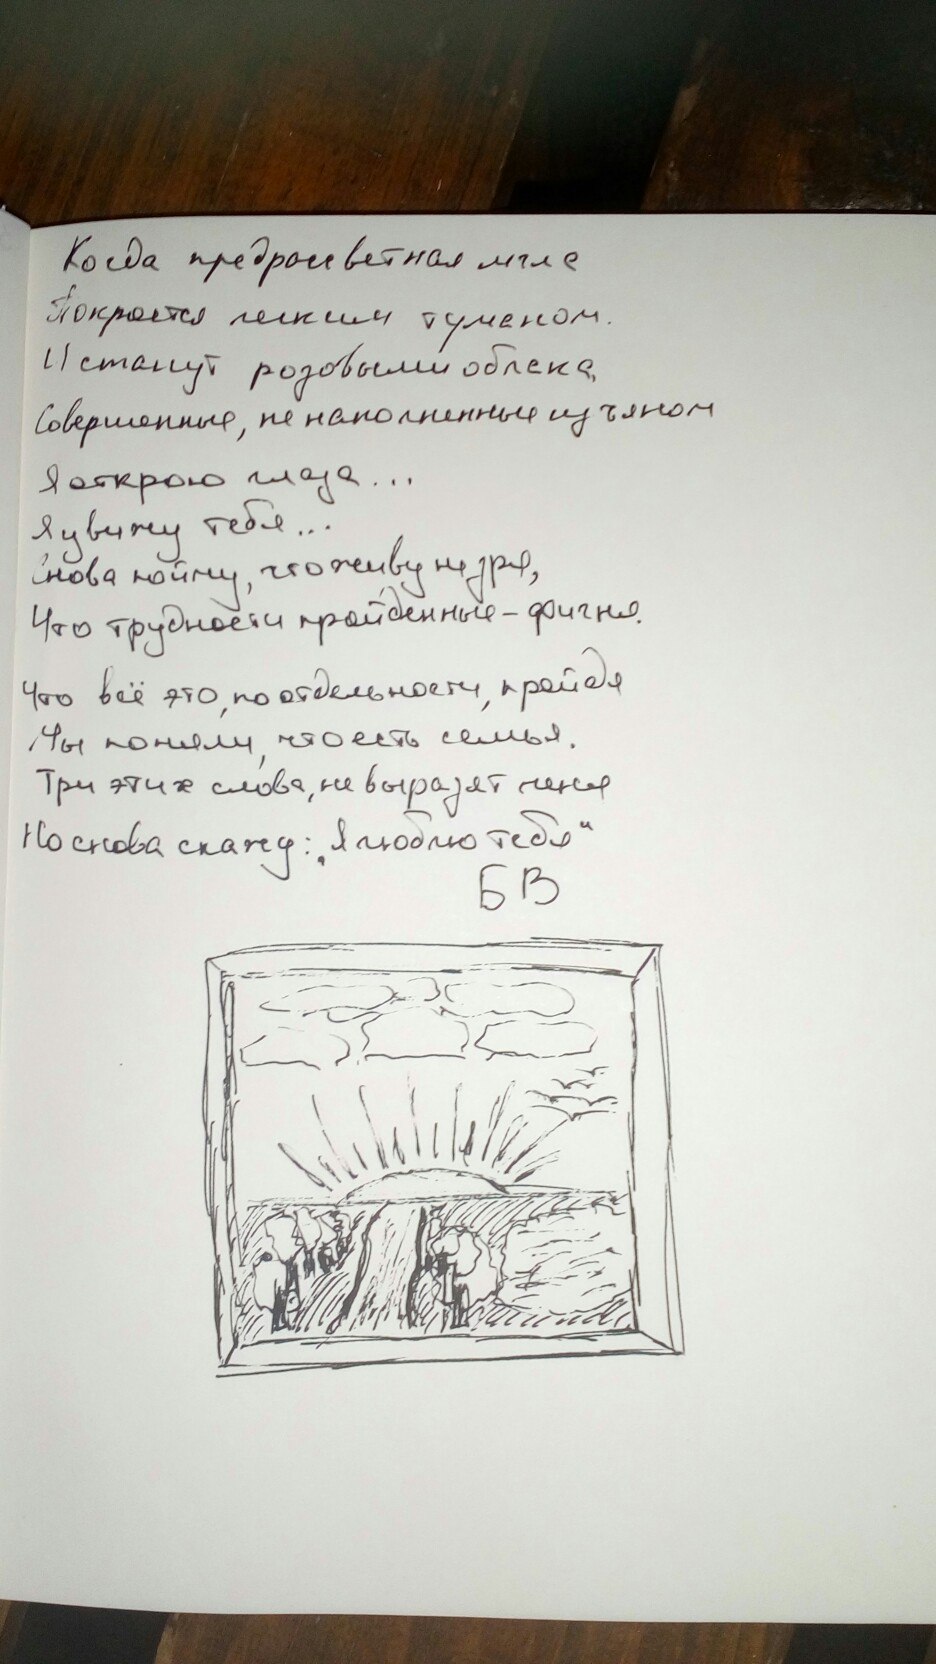 Когда предрассветная мгла
Покроется легким туманом.
И станут розовыми облака,
Совершенные, не наполненные изъяном
Я открою глаза...
Я увижу тебя...
Снова пойму, что живу не зря,
Что трудности пройденные - фигня.
Что всё это, по отдельности, пройдя
Мы поняли, что есть семья.
Три этих слова, не выразят меня
Но снова скажу: „Я люблю тебя"
БВ